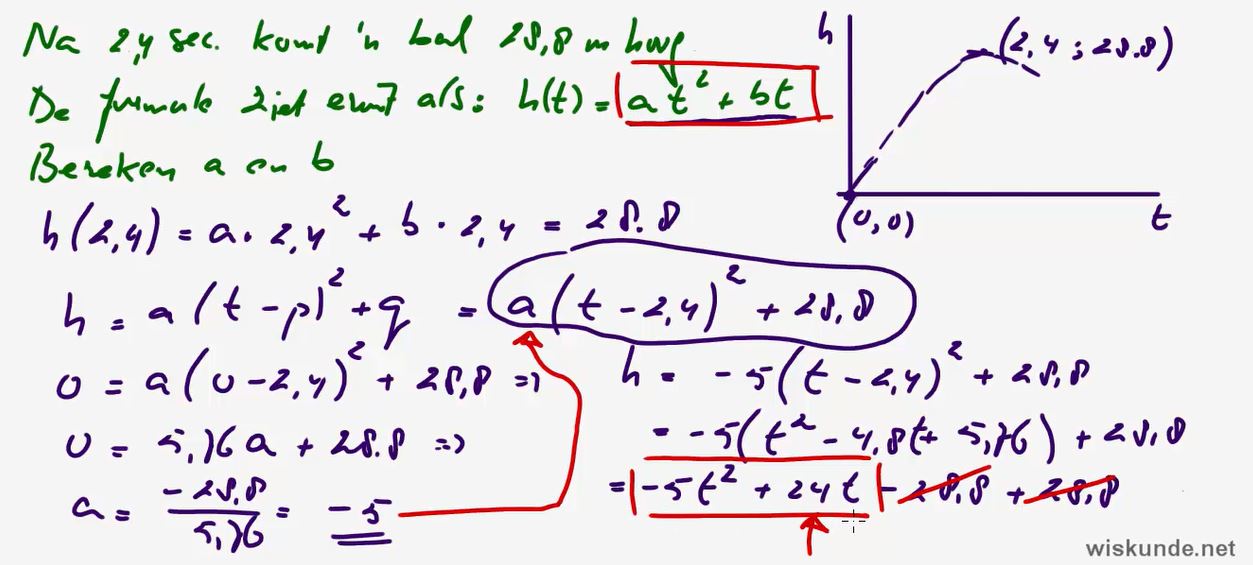 Na 2,4 sec. komt 'n bal 28,8 m hoog
De formule ziet eruit als: h(t) = at² + bt
Bereken a en b
h
(2,4 ; 28.8)
(0,0)
t
h(2,4) = a · 2,4² + b · 2,4 = 28.8
h = a(t - p)² + q = a(t - 2,4)² + 28,8
0 = a(0 - 2,4)² + 28,8 =>
0 = 5,76a + 28.8 =>
a = -28,8 / 5,76 = -5
h = -5(t - 2,4)² + 28,8
= -5(t² - 4,8t + 5,76) + 28,8
= -5t² + 24t - 28,8 + 28,8
wiskunde.net